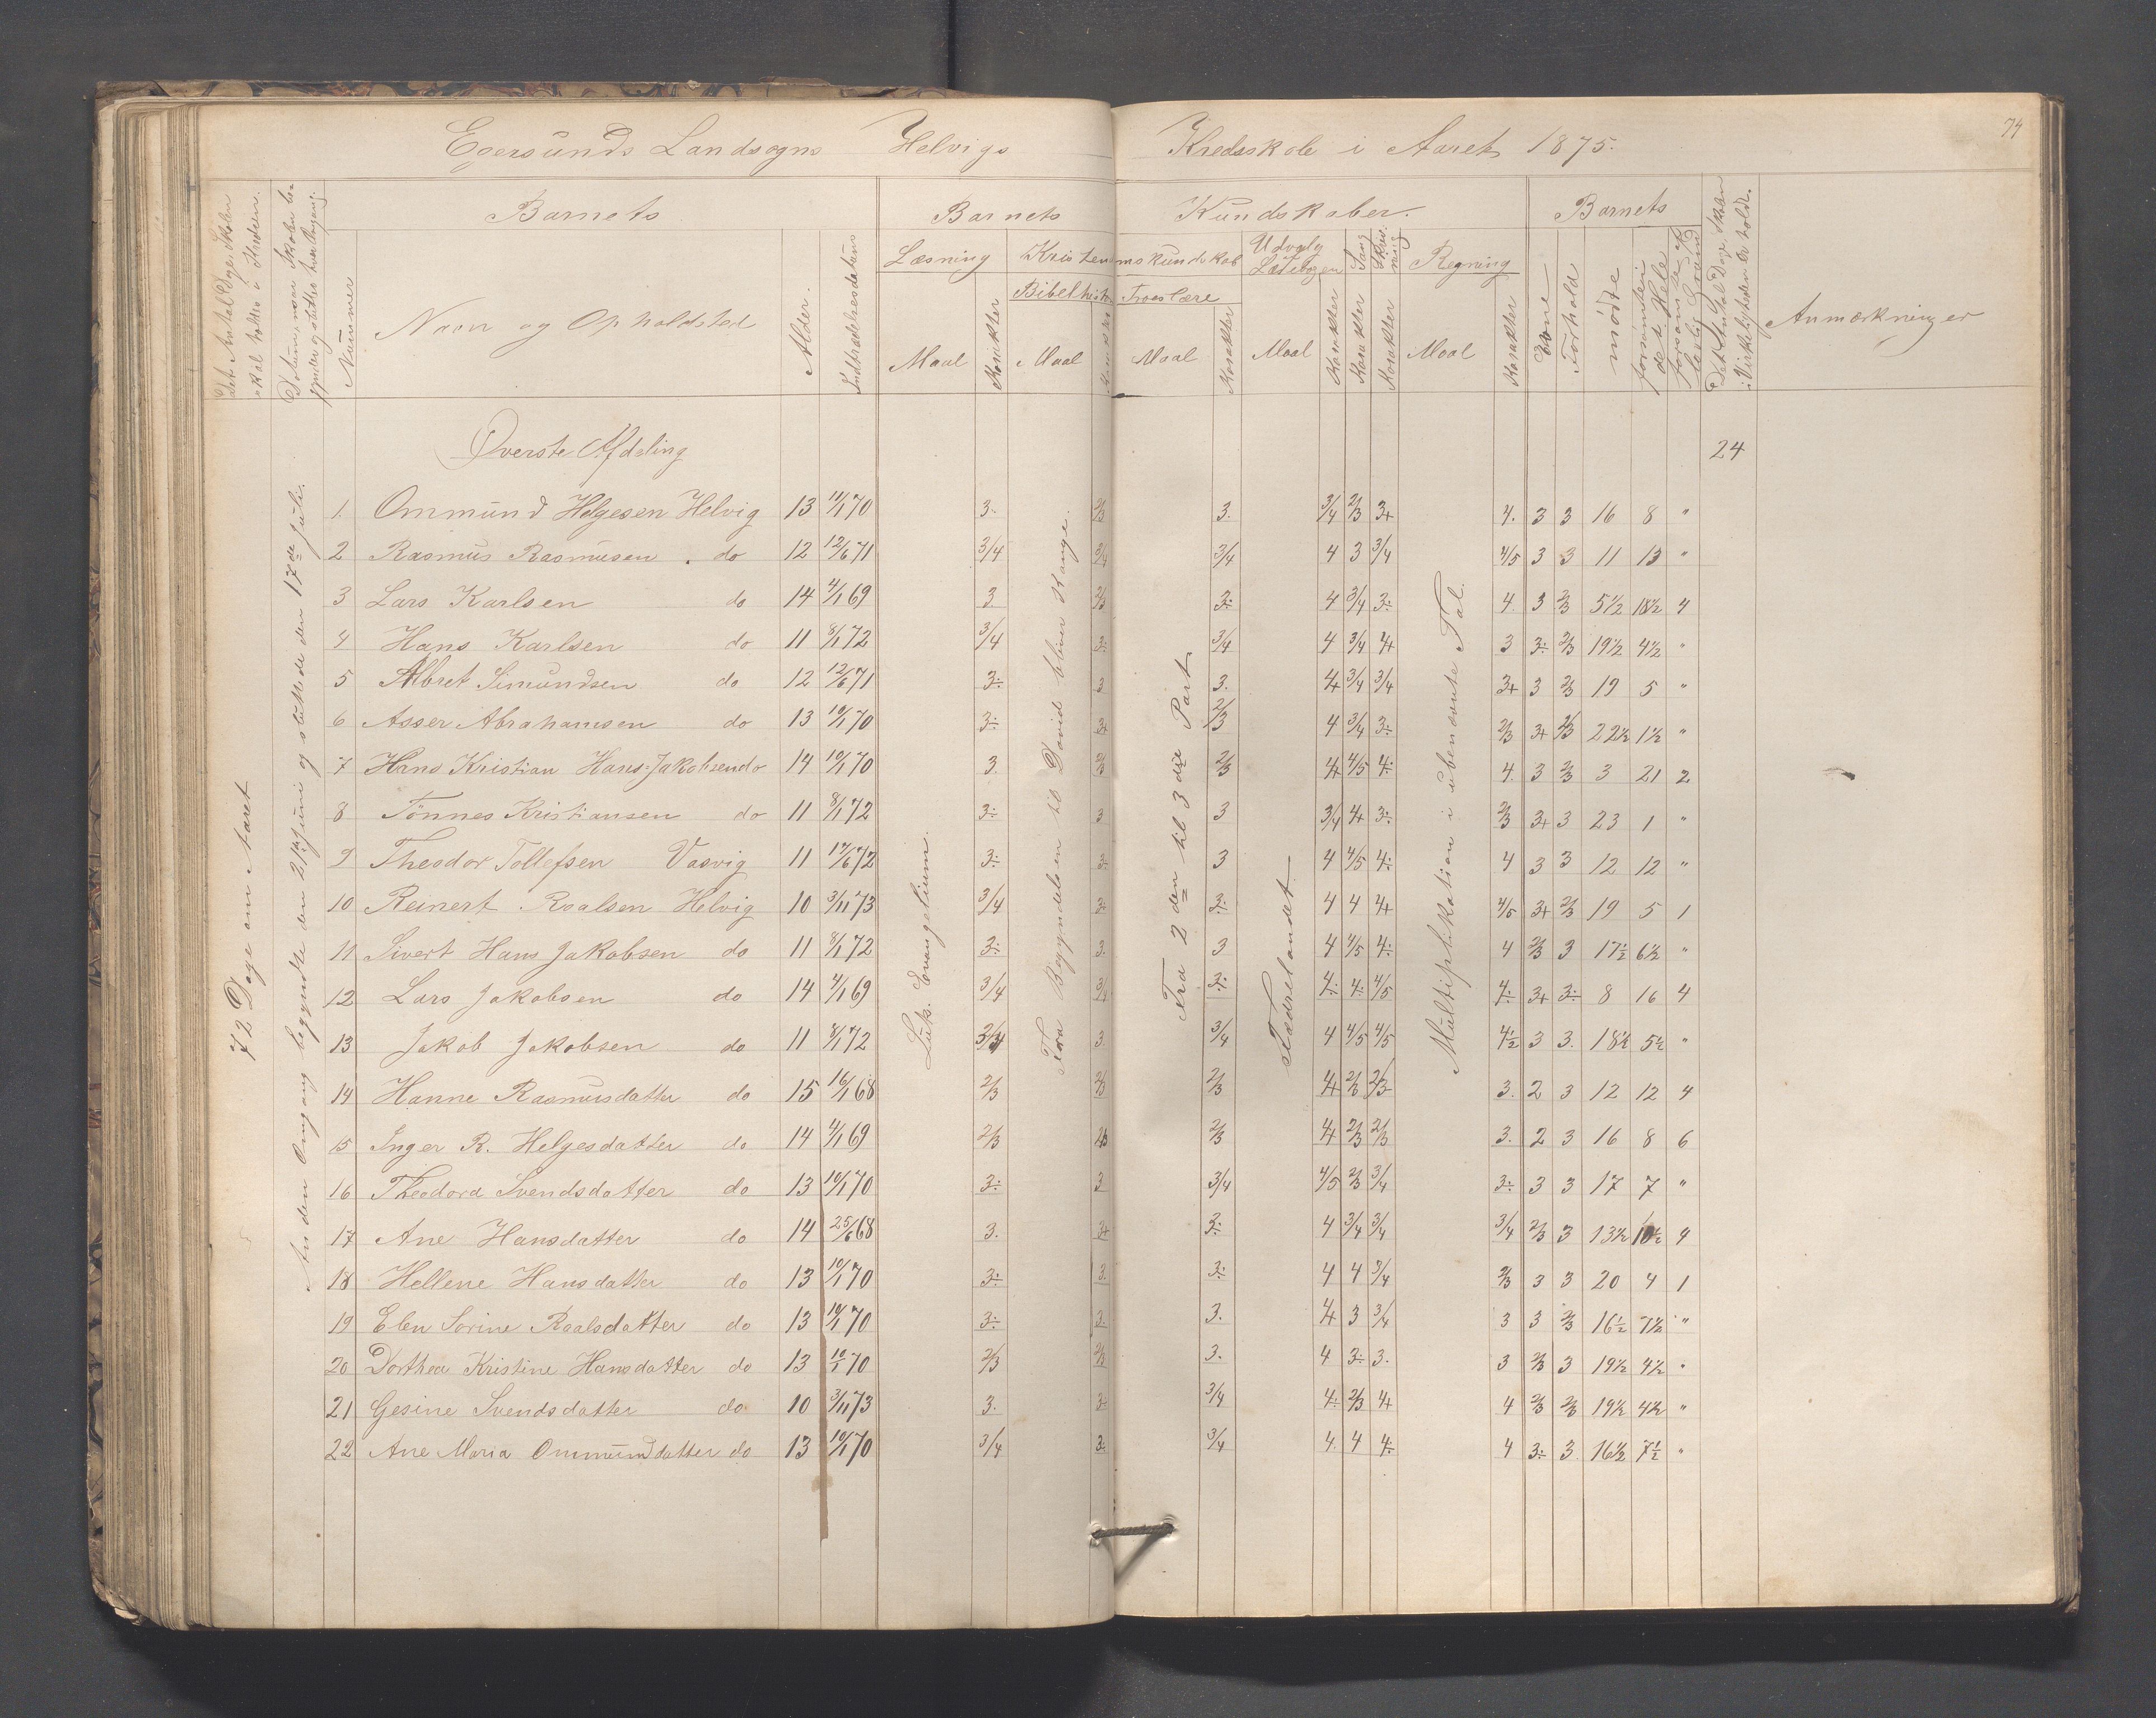 Egersunds Landsogns Helvigs Kredsskole i Aaret 1875.
74
Det Antal Dage Skolen skal holdes i Kredsen.
Datum, naar Skolen begynder og sluttes hver Omgang.
Nummer
Barnets
Navn og Opholdsted
Alder.
Indtrædelsesdatum
Barnets Kundskaber.
Læsning
Maal
Karakter
Kristendomskundskab
Bibelhistorie
Maal
Karakter
Troeslære
Maal
Karakter
Udvalg Læsebogen
Maal
Karakter
Sang
Karakter
Skrivning
Karakter
Regning
Maal
Karakter
Barnets
Evne
Forhold
mødte
forsømte i det Hele
forsømte af lovlig Grund
Det Antal Dage Skolen i Virkeligheden er holdt.
Anmærkninger
72 Dage om Aaret
Anden Omgang begyndte den 21de Juni og sluttede den 17de Juli.
Luk. Evangelium.
Fra Begyndelsen til David bliver Konge.
Fra 2den til 3die Part
Fædrelandet
Multiplikation i ubenævnte Tal.
Øverste Afdeling 24
1. Ommund Helgesen Helvig 13 11/1 70 3. 2/3 3. 3/4 2/3 3+ 4. 3 3 16 8 "
2 Rasmus Rasmusen do 12 12/6 71 3/4 3/4 3/4 4 3 3/4 4/5 3 3 11 13 "
3 Lars Karlsen do 14 4/1 69 3 2/3 3÷ 4 3/4 3÷ 4. 3 2/3 5 1/2 18 1/2 4
4 Hans Karlsen do 11 8/1 72 3/4 3÷ 3/4 4 3/4 4+ 3 3÷ 2/3 19 1/2 4 1/2 "
5 Albret Simundsen do 12 12/6 71 3÷ 3 3. 4+ 3/4 3/4 3+ 3 2/3 19 5 "
6 Asser Abrahamsen do 13 10/1 70 3÷ 3+ 2/3 4 3/4 3÷ 2/3 3+ 2/3 22 1/2 1 1/2 "
7 Hans Kristian Hans-Jakobsen do 14 10/1 70 3. 2/3 2/3 4+ 4/5 4÷ 4. 3 2/3 3 21 2
8 Tönnes Kristiansen do 11 8/1 72 3÷ 3 3 3/4 4+ 3÷ 2/3 3+ 3 23 1 "
9 Theodor Tollefsen Vasvig 11 17/6 72 3÷ 3÷ 3 4 4/5 4÷ 4 3 3 12 12 "
10 Reinert Roalsen Helvig 10 3/11 73 3/4 3÷ 3÷ 4 4 4+ 4/5 3+ 2/3 19 5 1
11 Sivert Hans Jakobsen do 11 8/1 72 3÷ 3. 3 4 4/5 4÷ 4 2/3 3 17 1/2 6 1/2 "
12 Lars Jakobsen do 14 4/1 69 3/4 3/4 3÷ 4÷ 4÷ 4/5 4÷ 3+ 3÷ 8 16 4
13 Jakob Jakobsen do 11 8/1 72 3/4 3. 3/4 4 4/5 4/5 4 1/2 3 3. 18 1/2 5 1/2 "
14 Hanne Rasmusdatter do 15 16/1 68 2/3 2/3 2/3 4+ 2/3 2/3 3. 2 3 12 12 4
15 Inger R. Helgesdatter do 14 4/1 69 2/3 2/3 2/3 4+ 2/3 2/3 3. 2 3 16 8 6
16 Theodora Svendsdatter do 13 10/1 70 3÷ 3 3/4 4/5 2/3 3/4 3÷ 3 3 17 7 "
17 Ane Hansdatter do 14 25/6 68 3. 3+ 3÷ 4 3/4 3/4 3/4 2/3 3 13 1/2 10 1/2 4
18 Hellene Hansdatter do 13 10/1 70 3÷ 3. 3÷ 4 4 3/4 2/3 3 3 20 4 1
19 Elen Sorine Roalsdatter do 13 10/1 70 3÷ 3. 3. 4+ 3 3/4 3 3 2/3 16 1/2 7 1/2 "
20 Dorthea Kristine Hansdatter do 13 10/1 70 2/3 2/3 3. 4 3÷ 3. 3 2/3 3 19 1/2 4 1/2 "
21 Gesine Svendsdatter do 10 3/11 73 3. 3÷ 3/4 4÷ 2/3 4+ 4 2/3 2/3 19 1/2 4 1/2 "
22 Ane Maria Ommundsdatter do 13 10/1 70 3/4 3÷ 3/4 4. 4 4÷ 4 3÷ 3 16 1/2 7 1/2 "